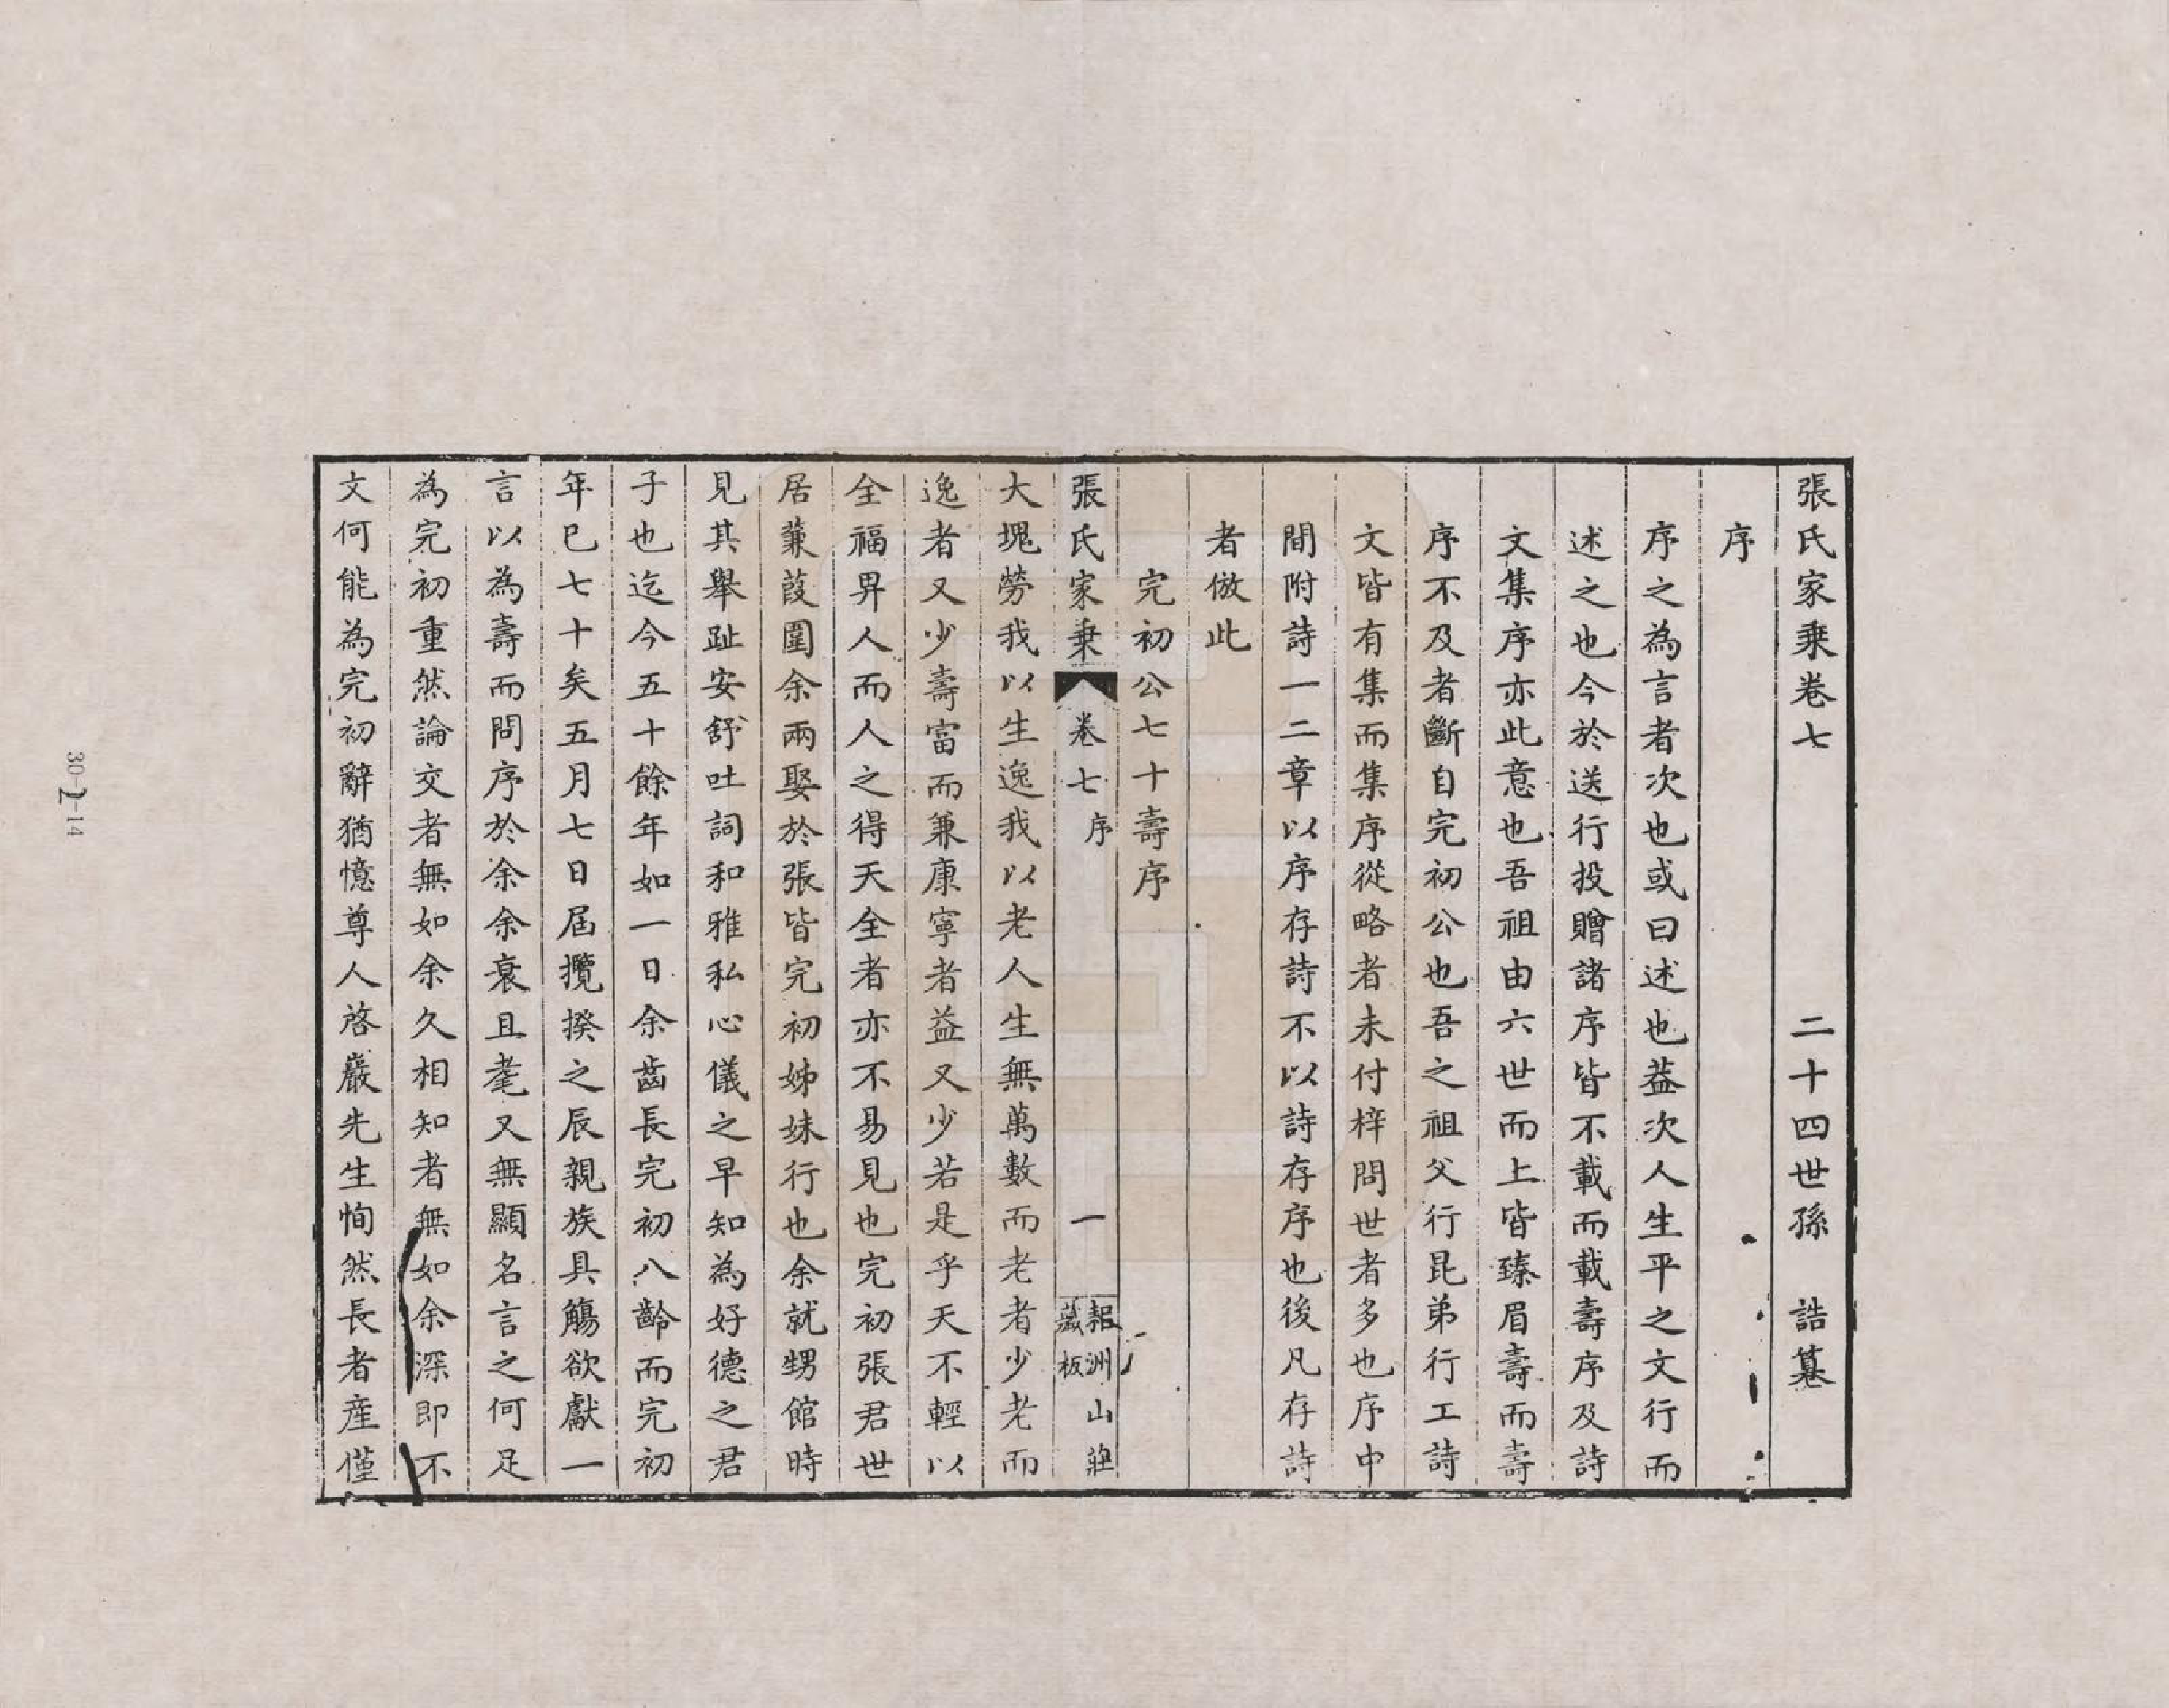 張氏家乗卷七　　　　　二十四世孫　誥纂
序
序之為言者次也或曰述也葢次人生平之文行而
述之也今於送行投贈諸序皆不載而載壽序及詩
文集序亦此意也吾祖由六世而上皆臻眉壽而壽
序不及者斷自完初公也吾之祖父行昆弟行工詩
文皆有集而集序從略者未付梓問世者多也序中
間附詩一二章以序存詩不以詩存序也後凡存詩
者倣此
完初公七十壽序
張氏家乗　卷七　序　一　報洲山莊藏板
大塊勞我以生逸我以老人生無萬數而老者少老而
逸者又少壽富而兼康寧者益又少若是乎天不輕以
全福畀人而人之得天全者亦不易見也完初張君世
居蒹葭圍余兩娶於張皆完初姊妹行也余就甥館時
見其舉趾安舒吐詞和雅私心儀之早知為好德之君
子也迄今五十餘年如一日余齒長完初八齡而完初
年巳七十矣五月七日屆攬揆之辰親族具觴欲獻一
言以為壽而問序於余余衰且耄又無顯名言之何足
為完初重然論交者無如余久相知者無如余深即不
文何能為完初辭猶憶尊人啓巖先生恂然長者産僅
30-2-14